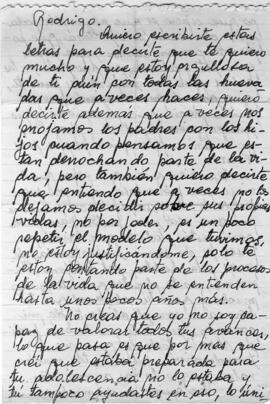 Rodrigo.
Quiero escribirte estas
letras para decirte que te quiero
mucho y que estoy orgullosa
de ti aún con todas las hueva
das que a veces haces, quiero
decirte además que a veces nos
enojamos los padres con los hi-
jos cuando pensamos que es-
tan derrochando parte de la vi-
da, pero también quiero decirte
que entiendo que a veces no los
dejamos decidir sobre sus propias
vidas, no por joder, es un poco
repetir el modelo que tuvimos,
no estoy justificándome, solo te
estoy contando parte de los procesos
de la vida que no se entienden
hasta unos pocos años más.
No creas que yo no soy ca-
paz de valorar todos tus avances,
lo que pasa es que por mas que
creí que estaba preparada para
tu adolescencia no lo estaba y
tú tampoco ayudastes en eso, lo úni